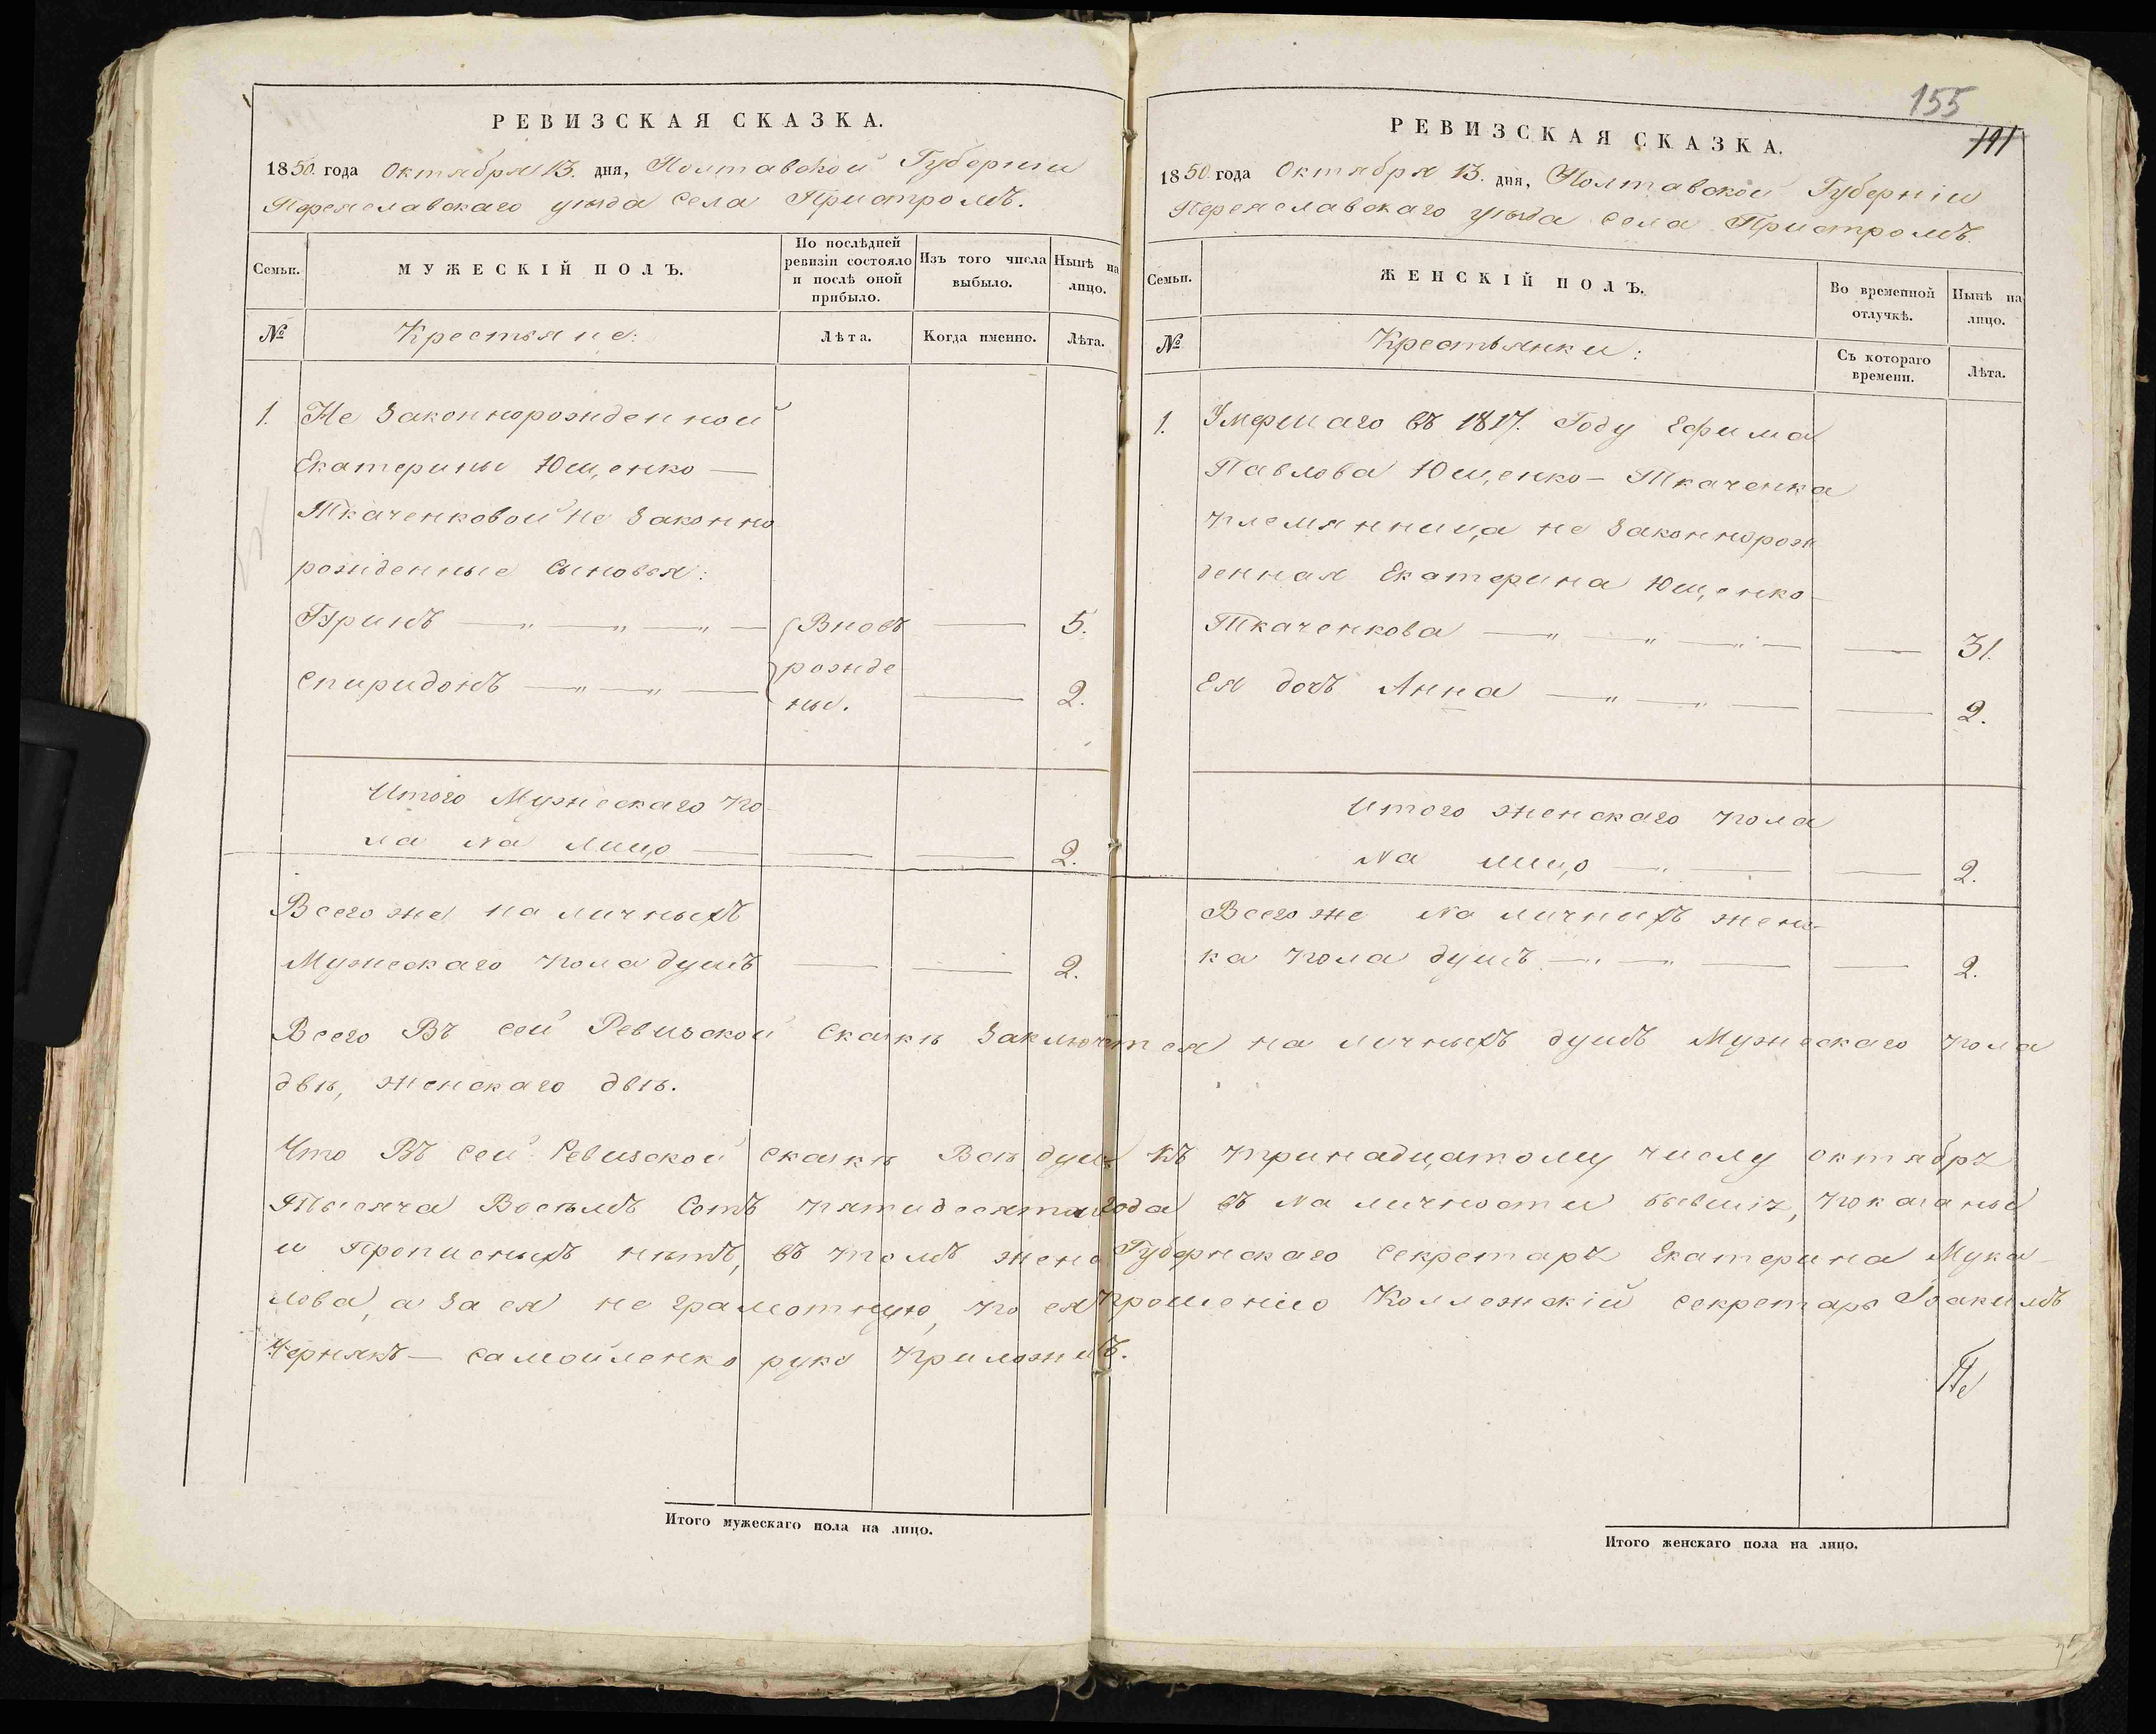 РЕВИЗСКАЯ СКАЗКА.
1850. года Октября 13. дня, Полтавской Губернии
Переяславскаго уѣзда села Пристромъ.
Семьи.
МУЖЕСКІЙ ПОЛЪ.
По послѣдней ревизіи состояло и послѣ оной прибыло.
Изъ того числа выбыло.
Нынѣ на лицо.
№
Крестьяне:
Лѣта.
Когда именно.
Лѣта.
1. Не Законнорожденной
Екатерины Ющенко —
Ткаченковой не Законно
рожденные сыновья:
— „ — „ — „ — Вновь — 5.
рожде
Спиридонъ — „ — „ — ны. — 2.
Итого Мужескаго по
ла на лицо — — — 2.
Всего же на личныхъ
Мужескаго пола душъ — — 2.
Всего Въ сей Ревизской Сказкѣ Заключается на личныхъ душъ Мужескаго пола
двѣ, женскаго двѣ.
Что Въ сей Ревизской сказкѣ Всѣ души къ тринадцатому числу октября
Тысяча Восѣмъ Сотъ пятидесятаго года въ на личности бывшія, показаны
и Прописныхъ нѣтъ, въ томъ жена Губернскаго Секретаря Екатерина Мука-
лова, а За ея не грамотную, по ея прошенію Коллежскій секретарь Іоакимъ
Чернякъ — Самойленко руку приложилъ.
Итого мужескаго пола на лицо.
155
191
РЕВИЗСКАЯ СКАЗКА.
1850. года Октября 13. дня, Полтавской Губерніи
Переяславскаго уѣзда села Пристромъ.
Семьи.
ЖЕНСКІЙ ПОЛЪ.
Во временной отлучкѣ.
Нынѣ на лицо.
№
Крестьянки:
Съ котораго времени.
Лѣта.
1. Умершаго въ 1817. Году Ефима
Павлова Ющенко — Ткаченка
племянница не Законнорож
денная Екатерина Ющенко —
Ткаченкова — „ — „ — „ — — 31.
Ея дочь Анна — „ — „ — — 2.
Итого женскаго пола
на лицо — „ — — 2.
Всего же на личныхъ женс-
ка пола душъ — „ — „ — — 2.
Итого женскаго пола на лицо.